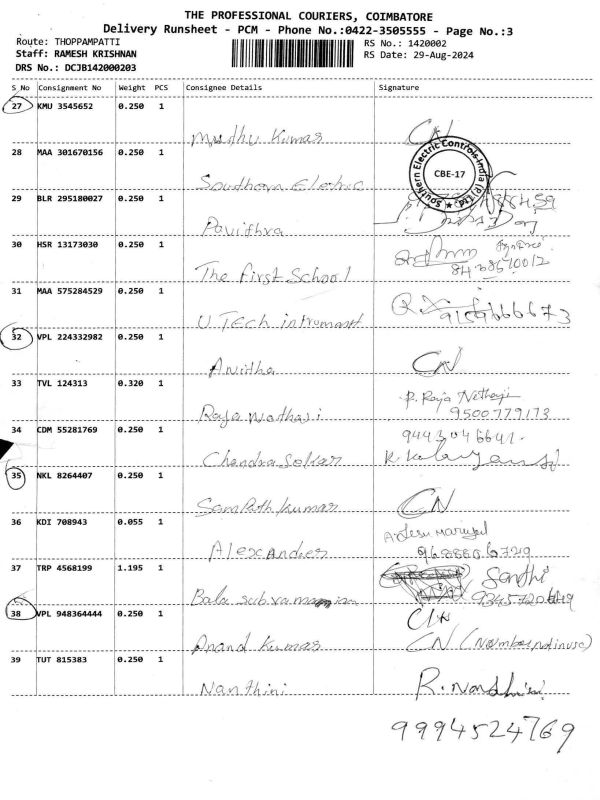 THE PROFESSIONAL COURIERS, COIMBATORE
Delivery Runsheet - PCM - Phone No.:0422-3505555 - Page No.:3
Route: THOPPAMPATTI
RS No.: 1420002
Staff: RAMESH KRISHNAN
RS Date: 29-Aug-2024
DRS No.: DCJB142000203
S_No Consignment No Weight PCS Consignee Details Signature
27 KMU 3545652 0.250 1
Mudhu Kumar CN
28 MAA 301670156 0.250 1
Southern Eletric
Southern Electric Controls India (P) Ltd.
CBE-17
29 BLR 295180027 0.250 1
Pavithra
30 HSR 13173030 0.250 1
The First School
31 MAA 575284529 0.250 1
U Tech 9159666673
32 VPL 224332982 0.250 1
Anitha CN
33 TVL 124313 0.320 1 R. Raja Nethaji
Raja 9500779173
34 CDM 55281769 0.250 1 9443046641.
Chandra Sekar
35 NKL 8264407 0.250 1
Sampath Kumar CN
36 KDI 708943 0.055 1
Alexander
37 TRP 4568199 1.195 1 Santhi
Bala
38 VPL 948364444 0.250 1 CN
Anand Kumar CN (Number not in use)
39 TUT 815383 0.250 1
Nanthini R. Nandhini
9994524769